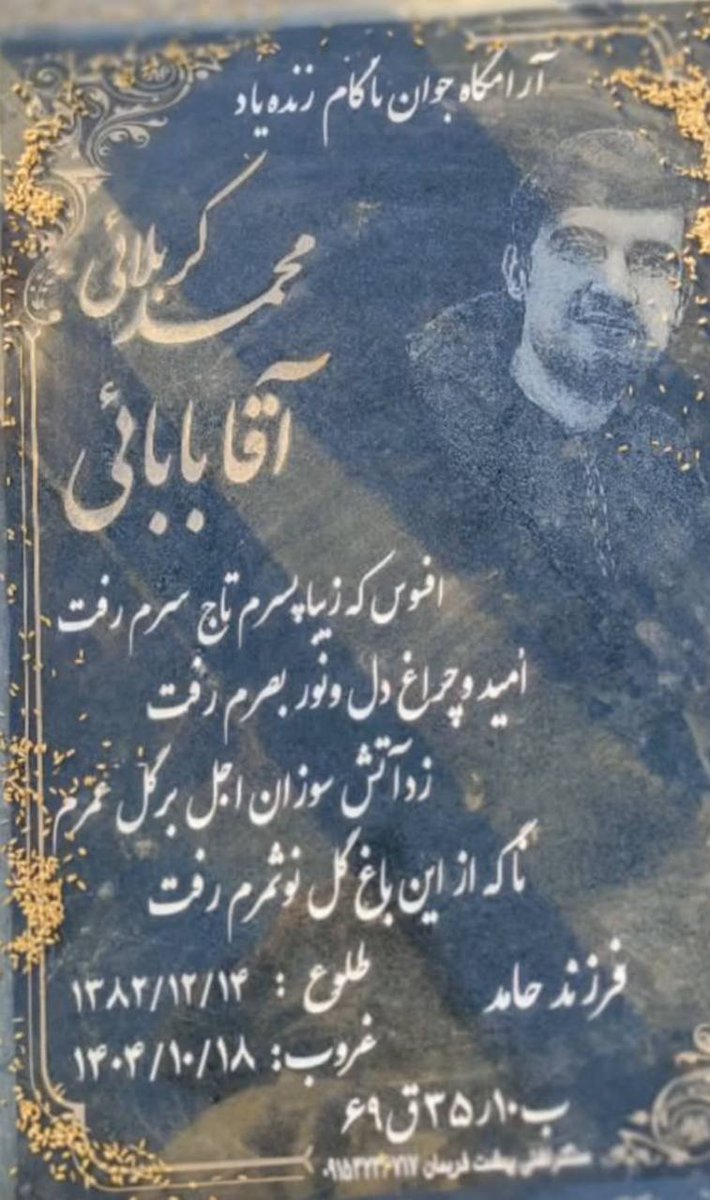 آرامگاه جوان ناکام زنده یاد
کربلائی
محمد
آقابابائی
افسوس که زیبا پسرم تاج سرم رفت
امید و چراغ دل و نور بصرم رفت
زد آتش سوزان اجل بر گل عمرم
ناگه از این باغ گل نوثمرم رفت
فرزند حامد
طلوع : ۱۳۸۲/۱۲/۱۴
غروب: ۱۴۰۴/۱۰/۱۸
ب۱۰ر۳۵ق۶۹
بهشت فریمان